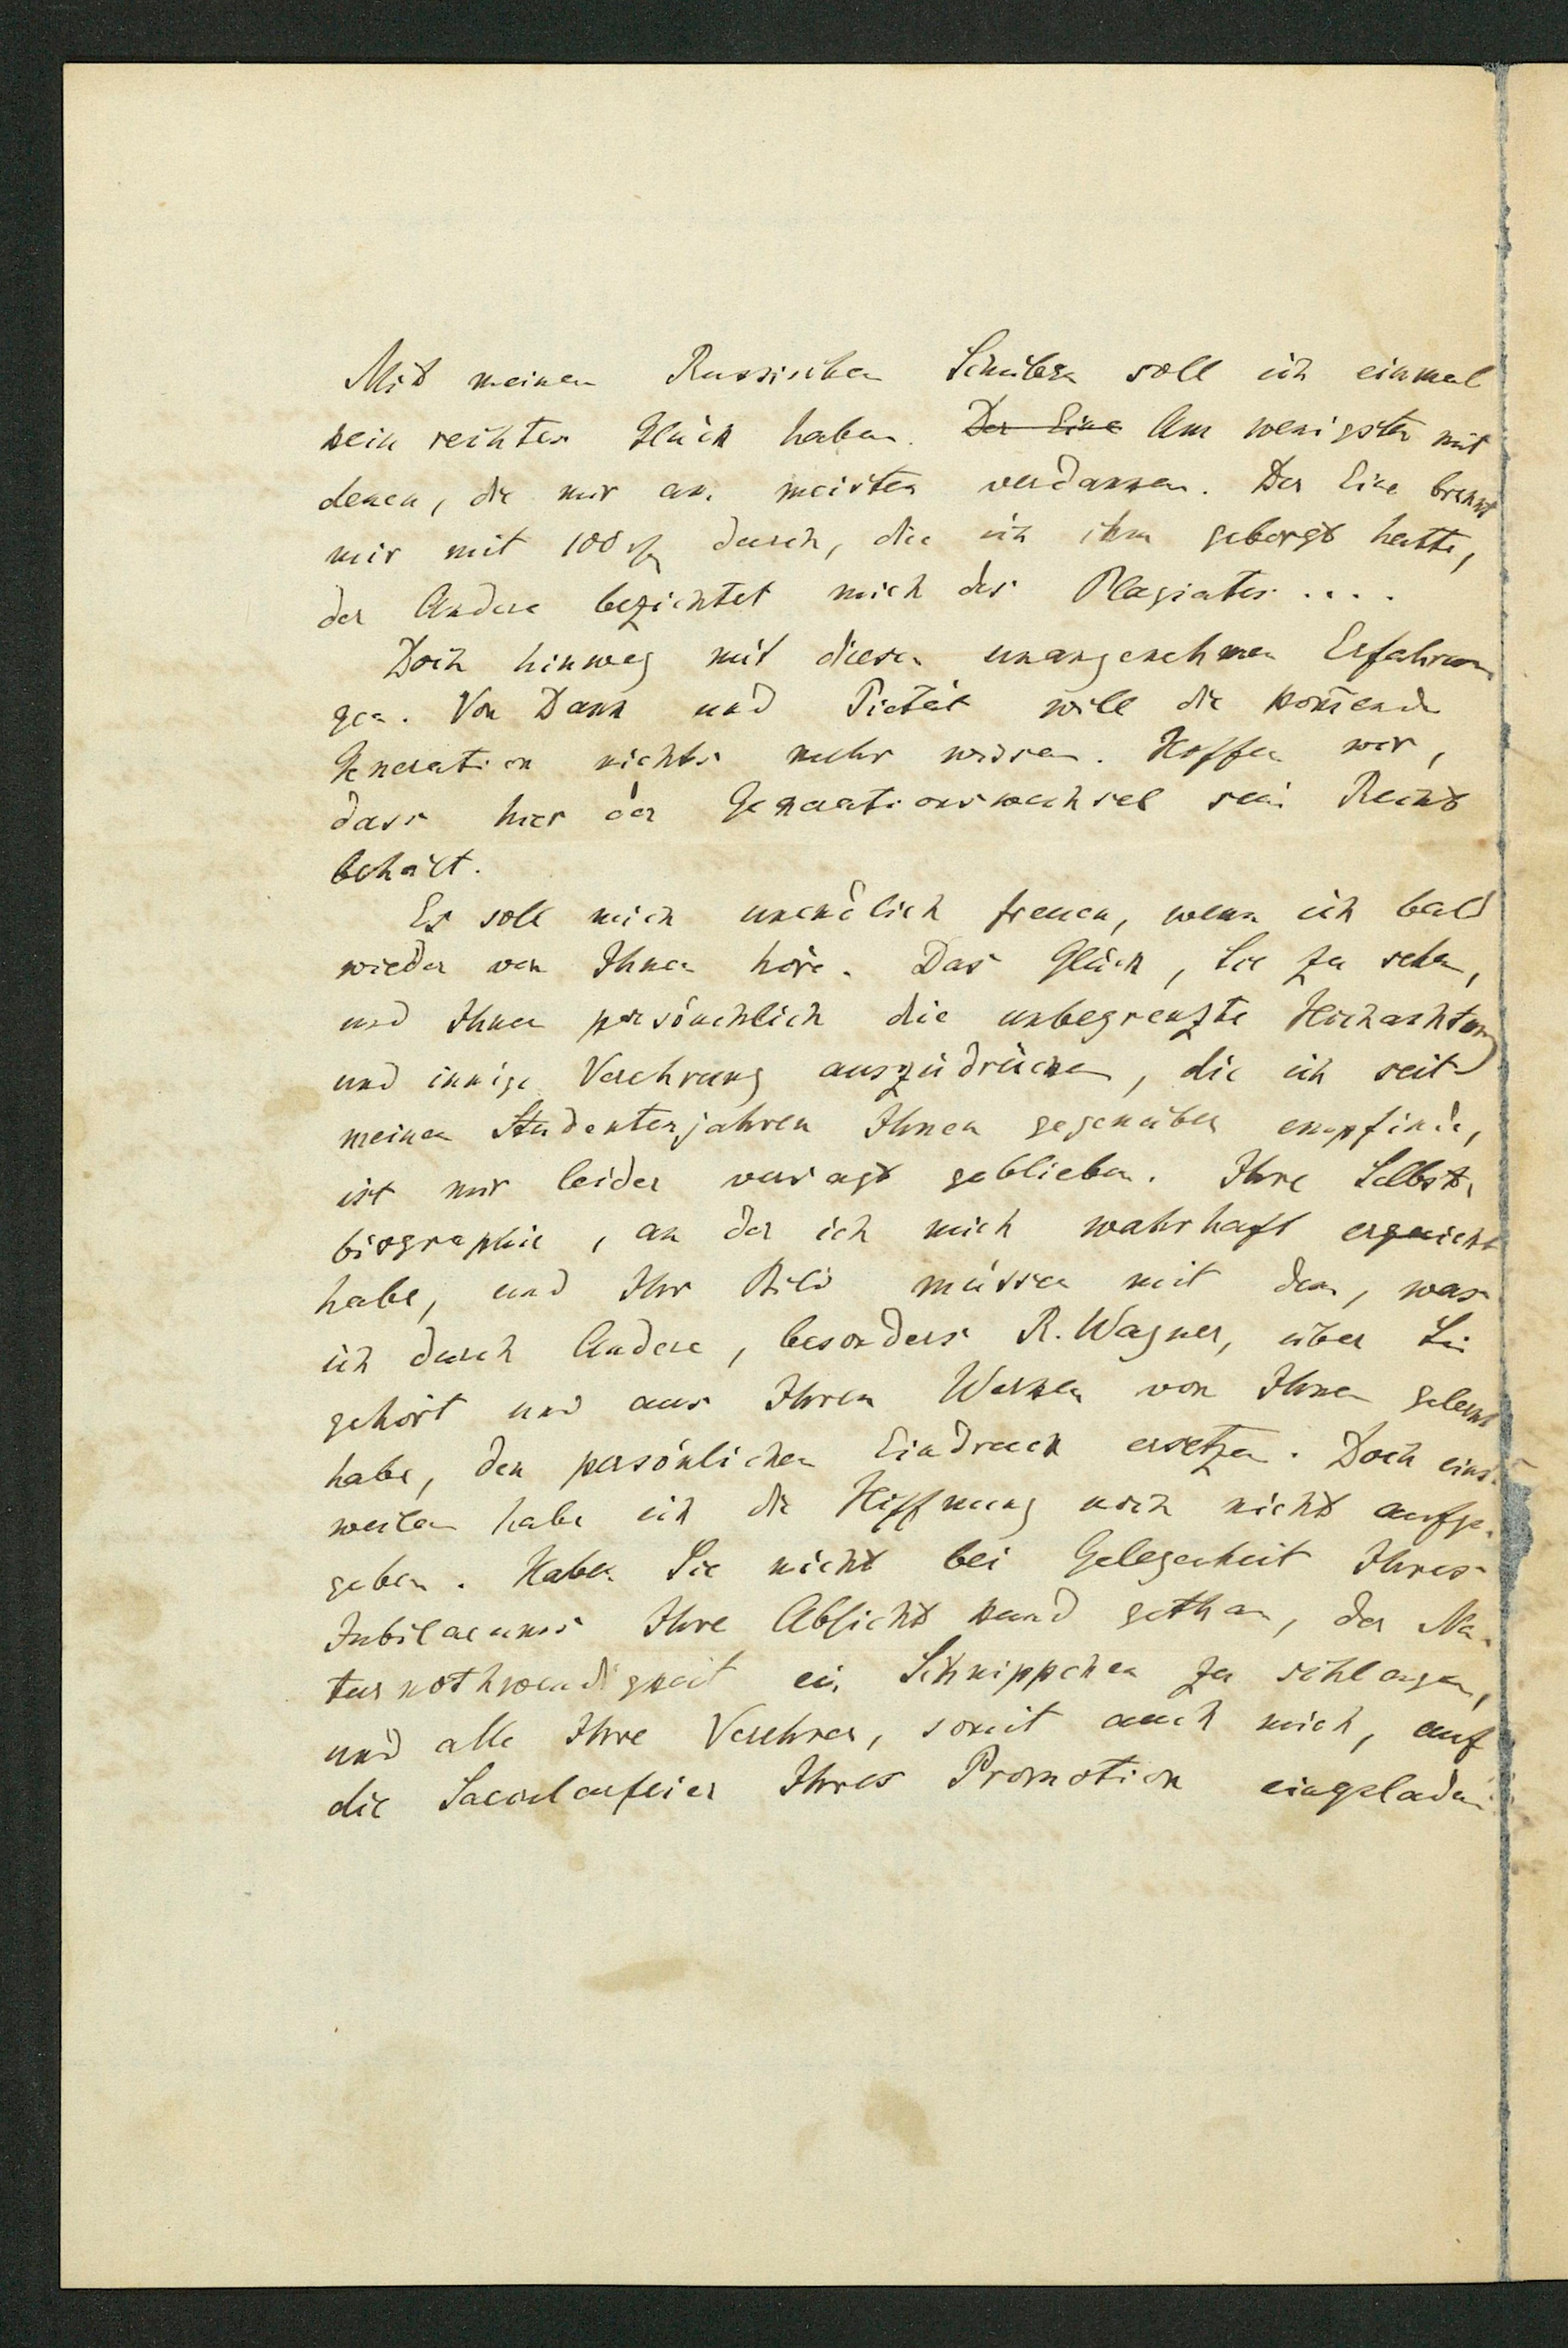 Mit meinen Russischen Schülern soll ich einmal
kein rechtes Glück haben. Der Eine Am wenigsten mit
denen, die mir am meisten verdanken. Der Eine brennt
mir mit 100 durch, die ich ihm geborgt hatte,
der Andere bezichtet mich des Plagiates....
Doch hinweg mit diesen unangenehmen Erfahrun
gen. Von Dank und Pietät will die kom̄ende
Generation nichts mehr wissen. Hoffen wir,
dass hier der Generationswechsel sein Recht
behält.
Es soll mich unendlich freuen, wenn ich bald
wieder von Ihnen höre. Das Glück, Sie zu sehen,
und Ihnen persönchlich die unbegrenzte Hochachtung
und innige Verehrung auszudrücken, die ich seit
meinen Studentenjahren Ihnen gegenüber empfinde,
ist mir leider versagt geblieben. Ihre Selbst-
biographie, an der ich mich wahrhaft erquickt
habe, und Ihr Bild müssen mit dem, was
ich durch Andere, besonders R. Wagner, über Sie
gehört und aus Ihren Werken von Ihnen gelernt
habe, den persönlichen Eindruck ersetzen. Doch einst-
weilen habe ich die Hoffnung noch nicht aufge-
geben. Haben Sie nicht bei Gelegenheit Ihres
Jubilaeums Ihre Absicht kund gethan, der Na-
turnothwendigkeit ein Schnippchen zu schlagen,
und alle Ihre Verehrer, somit auch mich, auf
die Saecularfeier Ihres Promotion eingeladen